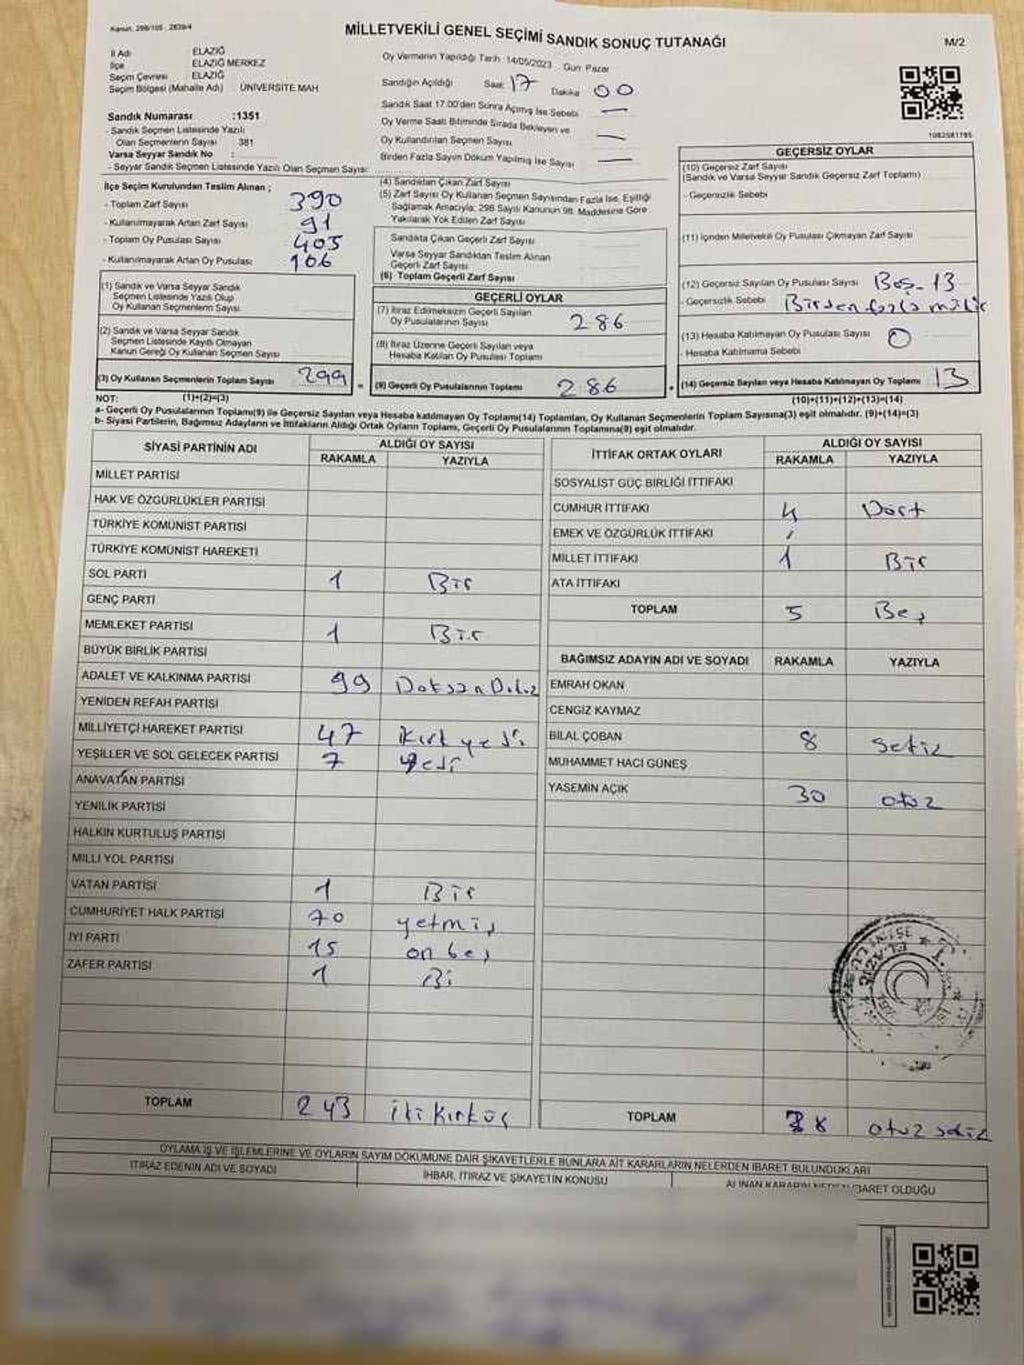 Kanun: 298/105 2839/4
MİLLETVEKİLİ GENEL SEÇİMİ SANDIK SONUÇ TUTANAĞI
M/2
İl Adı ELAZIĞ
İlçe ELAZIĞ MERKEZ
Seçim Çevresi ELAZIĞ
Seçim Bölgesi (Mahalle Adı) : ÜNİVERSİTE MAH
Sandık Numarası :1351
- Sandık Seçmen Listesinde Yazılı
Olan Seçmenlerin Sayısı 381
Varsa Seyyar Sandık No :
- Seyyar Sandık Seçmen Listesinde Yazılı Olan Seçmen Sayısı
Oy Vermenin Yapıldığı Tarih 14/05/2023 Gün Pazar
Sandığın Açıldığı Saat 17 Dakika 00
Sandık Saat 17.00'den Sonra Açılmış İse Sebebi —
Oy Verme Saati Bitiminde Sırada Bekleyen ve
Oy Kullandırılan Seçmen Sayısı —
Birden Fazla Sayım Döküm Yapılmış İse Sayısı —
1082581785
İlçe Seçim Kurulundan Teslim Alınan ;
- Toplam Zarf Sayısı 390
- Kullanılmayarak Artan Zarf Sayısı 91
- Toplam Oy Pusulası Sayısı 405
- Kullanılmayarak Artan Oy Pusulası 106
(1) Sandık ve Varsa Seyyar Sandık
Seçmen Listesinde Yazılı Olup
Oy Kullanan Seçmenlerin Sayısı
(2) Sandık ve Varsa Seyyar Sandık
Seçmen Listesinde Kayıtlı Olmayan
Kanun Gereği Oy Kullanan Seçmen Sayısı
(3) Oy Kullanan Seçmenlerin Toplam Sayısı 299
(4) Sandıktan Çıkan Zarf Sayısı
(5) Zarf Sayısı Oy Kullanan Seçmen Sayısından Fazla İse, Eşitliği
Sağlamak Amacıyla; 298 Sayılı Kanunun 98. Maddesine Göre
Yakılarak Yok Edilen Zarf Sayısı
Sandıkta Çıkan Geçerli Zarf Sayısı
Varsa Seyyar Sandıktan Teslim Alınan
Geçerli Zarf Sayısı
(6) Toplam Geçerli Zarf Sayısı
GEÇERLİ OYLAR
(7) İtiraz Edilmeksizin Geçerli Sayılan
Oy Pusulalarının Sayısı 286
(8) İtiraz Üzerine Geçerli Sayılan veya
Hesaba Katılan Oy Pusulası Toplamı
= (9) Geçerli Oy Pusulalarının Toplamı 286 +
GEÇERSİZ OYLAR
(10) Geçersiz Zarf Sayısı
(Sandık ve Varsa Seyyar Sandık Geçersiz Zarf Toplamı)
- Geçersizlik Sebebi
(11) İçinden Milletvekili Oy Pusulası Çıkmayan Zarf Sayısı
(12) Geçersiz Sayılan Oy Pusulası Sayısı Boş - 13
- Geçersizlik Sebebi Birden fazla mühür
(13) Hesaba Katılmayan Oy Pusulası Sayısı 0
- Hesaba Katılmama Sebebi
(14) Geçersiz Sayılan veya Hesaba Katılmayan Oy Toplamı 13
NOT: (1)+(2)=(3) (10)+(11)+(12)+(13)=(14)
a- Geçerli Oy Pusulasının Toplamı(9) ile Geçersiz Sayılan veya Hesaba katılmayan Oy Toplamı(14) Toplamları, Oy Kullanan Seçmenlerin Toplam Sayısına(3) eşit olmalıdır. (9)+(14)=(3)
b- Siyasi Partilerin, Bağımsız Adayların ve İttifakların Aldığı Ortak Oyların Toplamı, Geçerli Oy Pusulalarının Toplamına(9) eşit olmalıdır.
SİYASİ PARTİNİN ADI ALDIĞI OY SAYISI
RAKAMLA YAZIYLA
MİLLET PARTİSİ
HAK VE ÖZGÜRLÜKLER PARTİSİ
TÜRKİYE KOMÜNİST PARTİSİ
TÜRKİYE KOMÜNİST HAREKETİ
SOL PARTİ 1 Bir
GENÇ PARTİ
MEMLEKET PARTİSİ 1 Bir
BÜYÜK BİRLİK PARTİSİ
ADALET VE KALKINMA PARTİSİ 99 Doksan Dokuz
YENİDEN REFAH PARTİSİ
MİLLİYETÇİ HAREKET PARTİSİ 47 kırk yedi
YEŞİLLER VE SOL GELECEK PARTİSİ 7 yedi
ANAVATAN PARTİSİ
YENİLİK PARTİSİ
HALKIN KURTULUŞ PARTİSİ
MİLLİ YOL PARTİSİ
VATAN PARTİSİ 1 Bir
CUMHURİYET HALK PARTİSİ 70 yetmiş
İYİ PARTİ 15 on beş
ZAFER PARTİSİ 1 Bi
TOPLAM 243 iki kırküç
İTTİFAK ORTAK OYLARI ALDIĞI OY SAYISI
RAKAMLA YAZIYLA
SOSYALİST GÜÇ BİRLİĞİ İTTİFAKI
CUMHUR İTTİFAKI 4 Dört
EMEK VE ÖZGÜRLÜK İTTİFAKI
MİLLET İTTİFAKI 1 Bir
ATA İTTİFAKI
TOPLAM 5 Beş
BAĞIMSIZ ADAYIN ADI VE SOYADI RAKAMLA YAZIYLA
EMRAH OKAN
CENGİZ KAYMAZ
BİLAL ÇOBAN 8 sekiz
MUHAMMET HACI GÜNEŞ
YASEMİN AÇIK 30 otuz
TOPLAM 38 otuz sekiz
OYLAMA İŞ VE İŞLEMLERİNE VE OYLARIN SAYIM DÖKÜMÜNE DAİR ŞİKAYETLERLE BUNLARA AİT KARARLARIN NELERDEN İBARET BULUNDUKLARI
İTİRAZ EDENİN ADI VE SOYADI
İHBAR, İTİRAZ VE ŞİKAYETİN KONUSU
ALINAN KARARIN NEDEN İBARET OLDUĞU